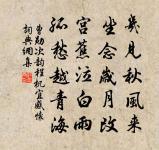 幾見秋風來
坐念歲月改
宮蕉泣白雨
孤愁越青海
曹勛次韵程杭宜感懷
詞典網集